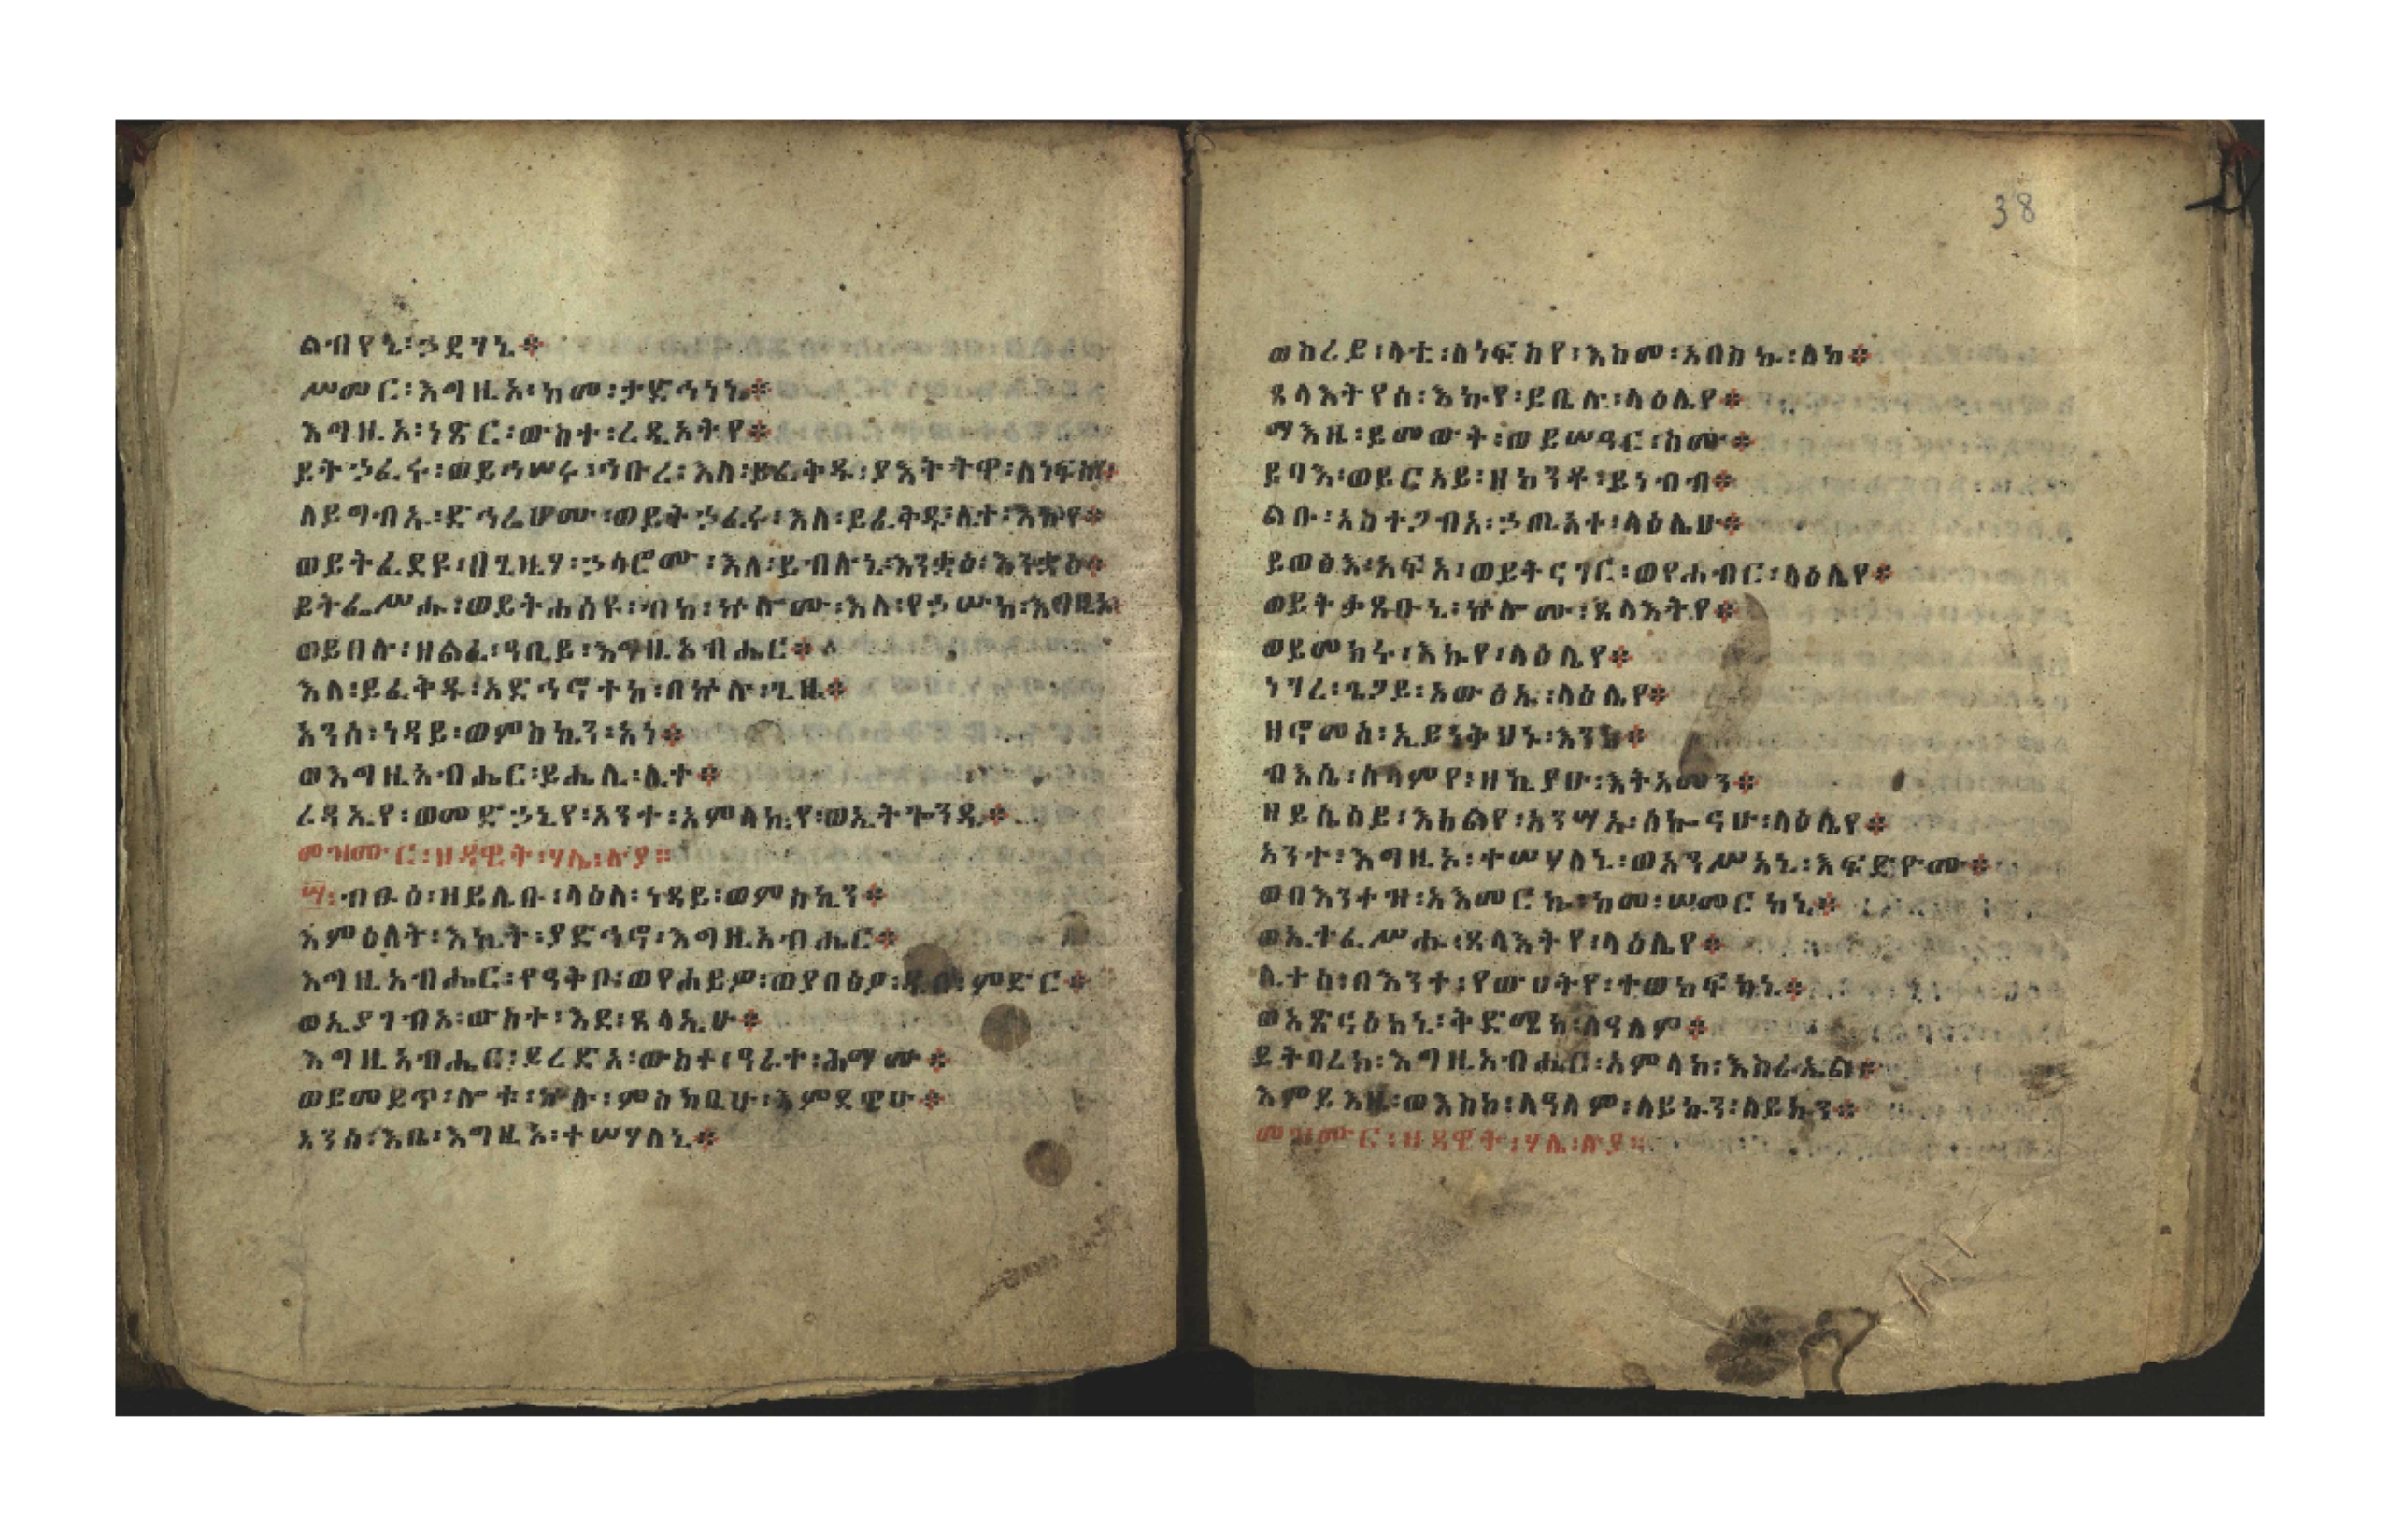 ልብየኒ፡ኃደገኒ፨
ሥመር፡እግዚኦ፡ከመ፡ታድኅነኒ፨
እግዚኦ፡ነጽር፡ውስተ፡ረዲኦትየ፨
ይትኃፈሩ፡ወይኅሠሩ፡ኅቡረ፡እለ፡ይፈትዱ፡ያእትትዋ፡ለነፍስየ፡
ለይግብኡ፡ድኅሬሆሙ፡ወይትኃፈሩ፡እለ፡ይፈትዱ፡ሊተ፡እኩየ፨
ወይትፈደይ፡በጊዜሃ፡ኃሳሮሙ፡እለ፡ይብሉኒ፡እንቋዕ፡እንቋዕ፨
ይትፌሥሑ፡ወይትሐሰዩ፡ብከ፡ኵሎሙ፡እለ፡የኃሡከ፡እግዚኦ
ወይበሉ፡ዘልፈ፡ዓቢይ፡እግዚአብሔር፨
እለ፡ይፈትዱ፡አድኅኖተከ፡በኵሉ፡ጊዜ፨
አንሰ፡ነዳይ፡ወምስኪን፡አነ፨
ወእግዚአብሔር፡ይሔሊ፡ሊተ፨
ረዳኢየ፡ወመድኃኒየ፡አንተ፡አምላኪየ፡ወኢትጐንዲ፨
መዝሙር፡ዘዳዊት፡ሃሌ፡ሉያ።
፵፡ብፁዕ፡ዘይሌቡ፡ላዕለ፡ነዳይ፡ወምስኪን፨
እምዕለት፡እኪት፡ያድኅኖ፡እግዚአብሔር፨
እግዚአብሔር፡የዓቅቦ፡ወየሐይዎ፡ወያበፅዖ፡ዲበ፡ምድር፨
ወኢያገብኦ፡ውስተ፡እደ፡ጸላኢሁ፨
እግዚአብሔር፡ይረድኦ፡ውስተ፡ዓራተ፡ሕማሙ፨
ወይመይጥ፡ሎቱ፡ኵሎ፡ምስካቢሁ፡እምደዌሁ፨
አንሰ፡እቤ፡እግዚኦ፡ተሠሃለኒ፨
ወስረይ፡ላቲ፡ለነፍስየ፡እስመ፡አበስኩ፡ለከ፨
ጸላእትየሰ፡እኩየ፡ይቤሉ፡ላዕሌየ፨
ማእዜ፡ይመውት፡ወይሠዓር፡ስሙ፨
ይባእ፡ወይርአይ፡ዘከንቶ፡ይነብብ፨
ልቡ፡አስተጋብአ፡ኃጢአተ፡ላዕሌሁ፨
ይወፅእ፡አፍአ፡ወይትናገር፡ወየሐብር፡ላዕሌየ፨
ወይትቃጸቡኒ፡ኵሎሙ፡ጸላእትየ፨
ወይመክሩ፡እኩየ፡ላዕሌየ፨
ነገረ፡ጌጋይ፡አውፅኡ፡ላዕሌየ፨
ዘኖመሰ፡ኢይነቅህኑ፡እንከ፨
ብእሴ፡ሰላምየ፡ዘኪያሁ፡እትአመን፨
ዘይሴሰይ፡እክልየ፡አንሣአ፡ሰኰናሁ፡ላዕሌየ፨
አንተ፡እግዚኦ፡ተሠሃለኒ፡ወአንሥአኒ፡እፍድዮሙ፨
ወበእንተዝ፡አእመርኩ፡ከመ፡ሠመርከኒ፨
ወኢተፈሥሑ፡ጸላእትየ፡ላዕሌየ፨
ሊተሰ፡በእንተ፡የውሀትየ፡ተወከፍከኒ፨
ወአጽናዕከኒ፡ቅድሜከ፡ለዓለም፨
ይትባረክ፡እግዚአብሔር፡አምላከ፡እስራኤል፨
እምይእዜ፡ወእስከ፡ለዓለም፡ለይኩን፡ለይኩን፨
መዝሙር፡ዘዳዊት፡ሃሌ፡ሉያ።
38